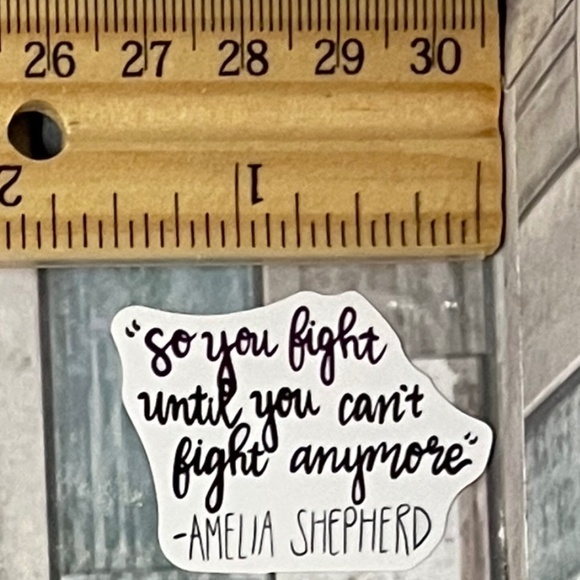 26 27 28 29 30
2 1
“so you fight
until you can't
fight anymore”
-AMELIA SHEPHERD